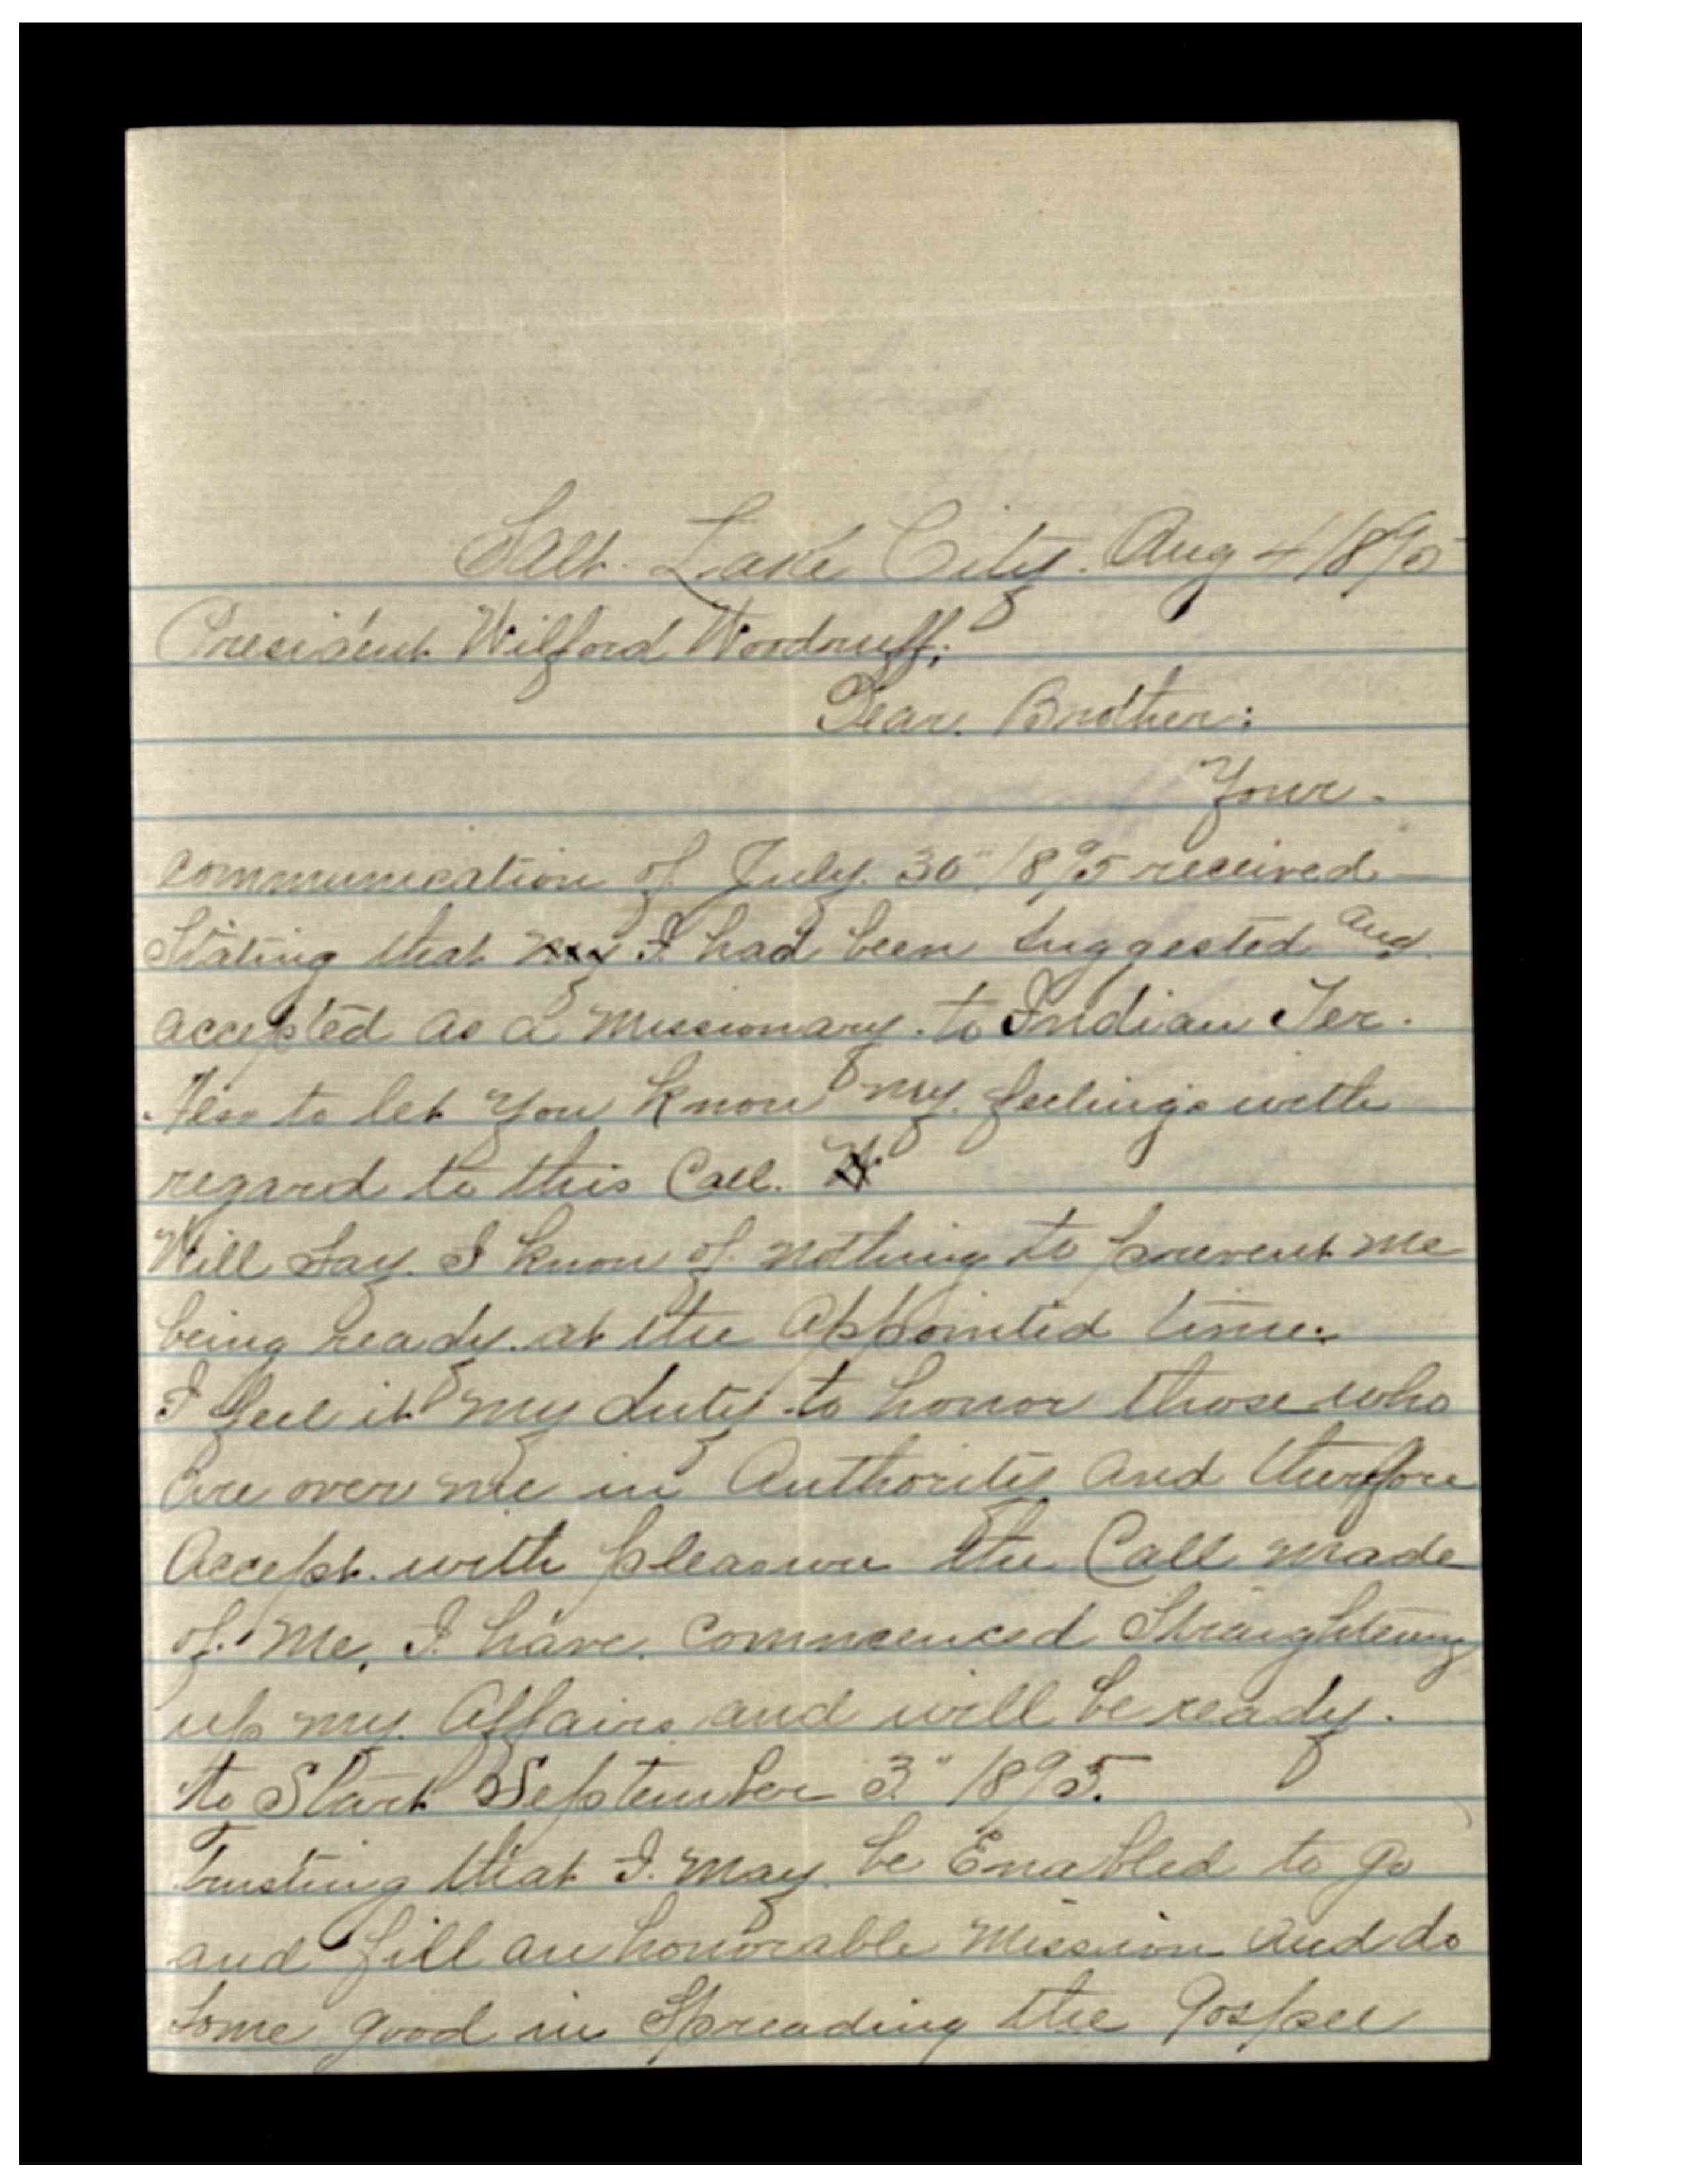 Salt. Lake City. Aug 4/1895
President Wilford Woodruff;
Dear. Brother:
Your.
communication of July. 30" 1895 received
Stating that my I had been suggested and
accepted as a missionary. to Indian Ter.
to let you know my. feelings with
regard to this Call.
Will Say. I know of nothing to prevent me
being ready. at the appointed time.
I feel it my duty to honor those who
are over me in Authority and therefore
Accept. with pleasure the Call made
of. me, I have. commenced Straightening
up my. Affairs and will be ready.
to Start September 3" 1895.
Trusting that I. may. be Enabled to go
and fill an honorable mission and do
some good in Spreading the Gospel